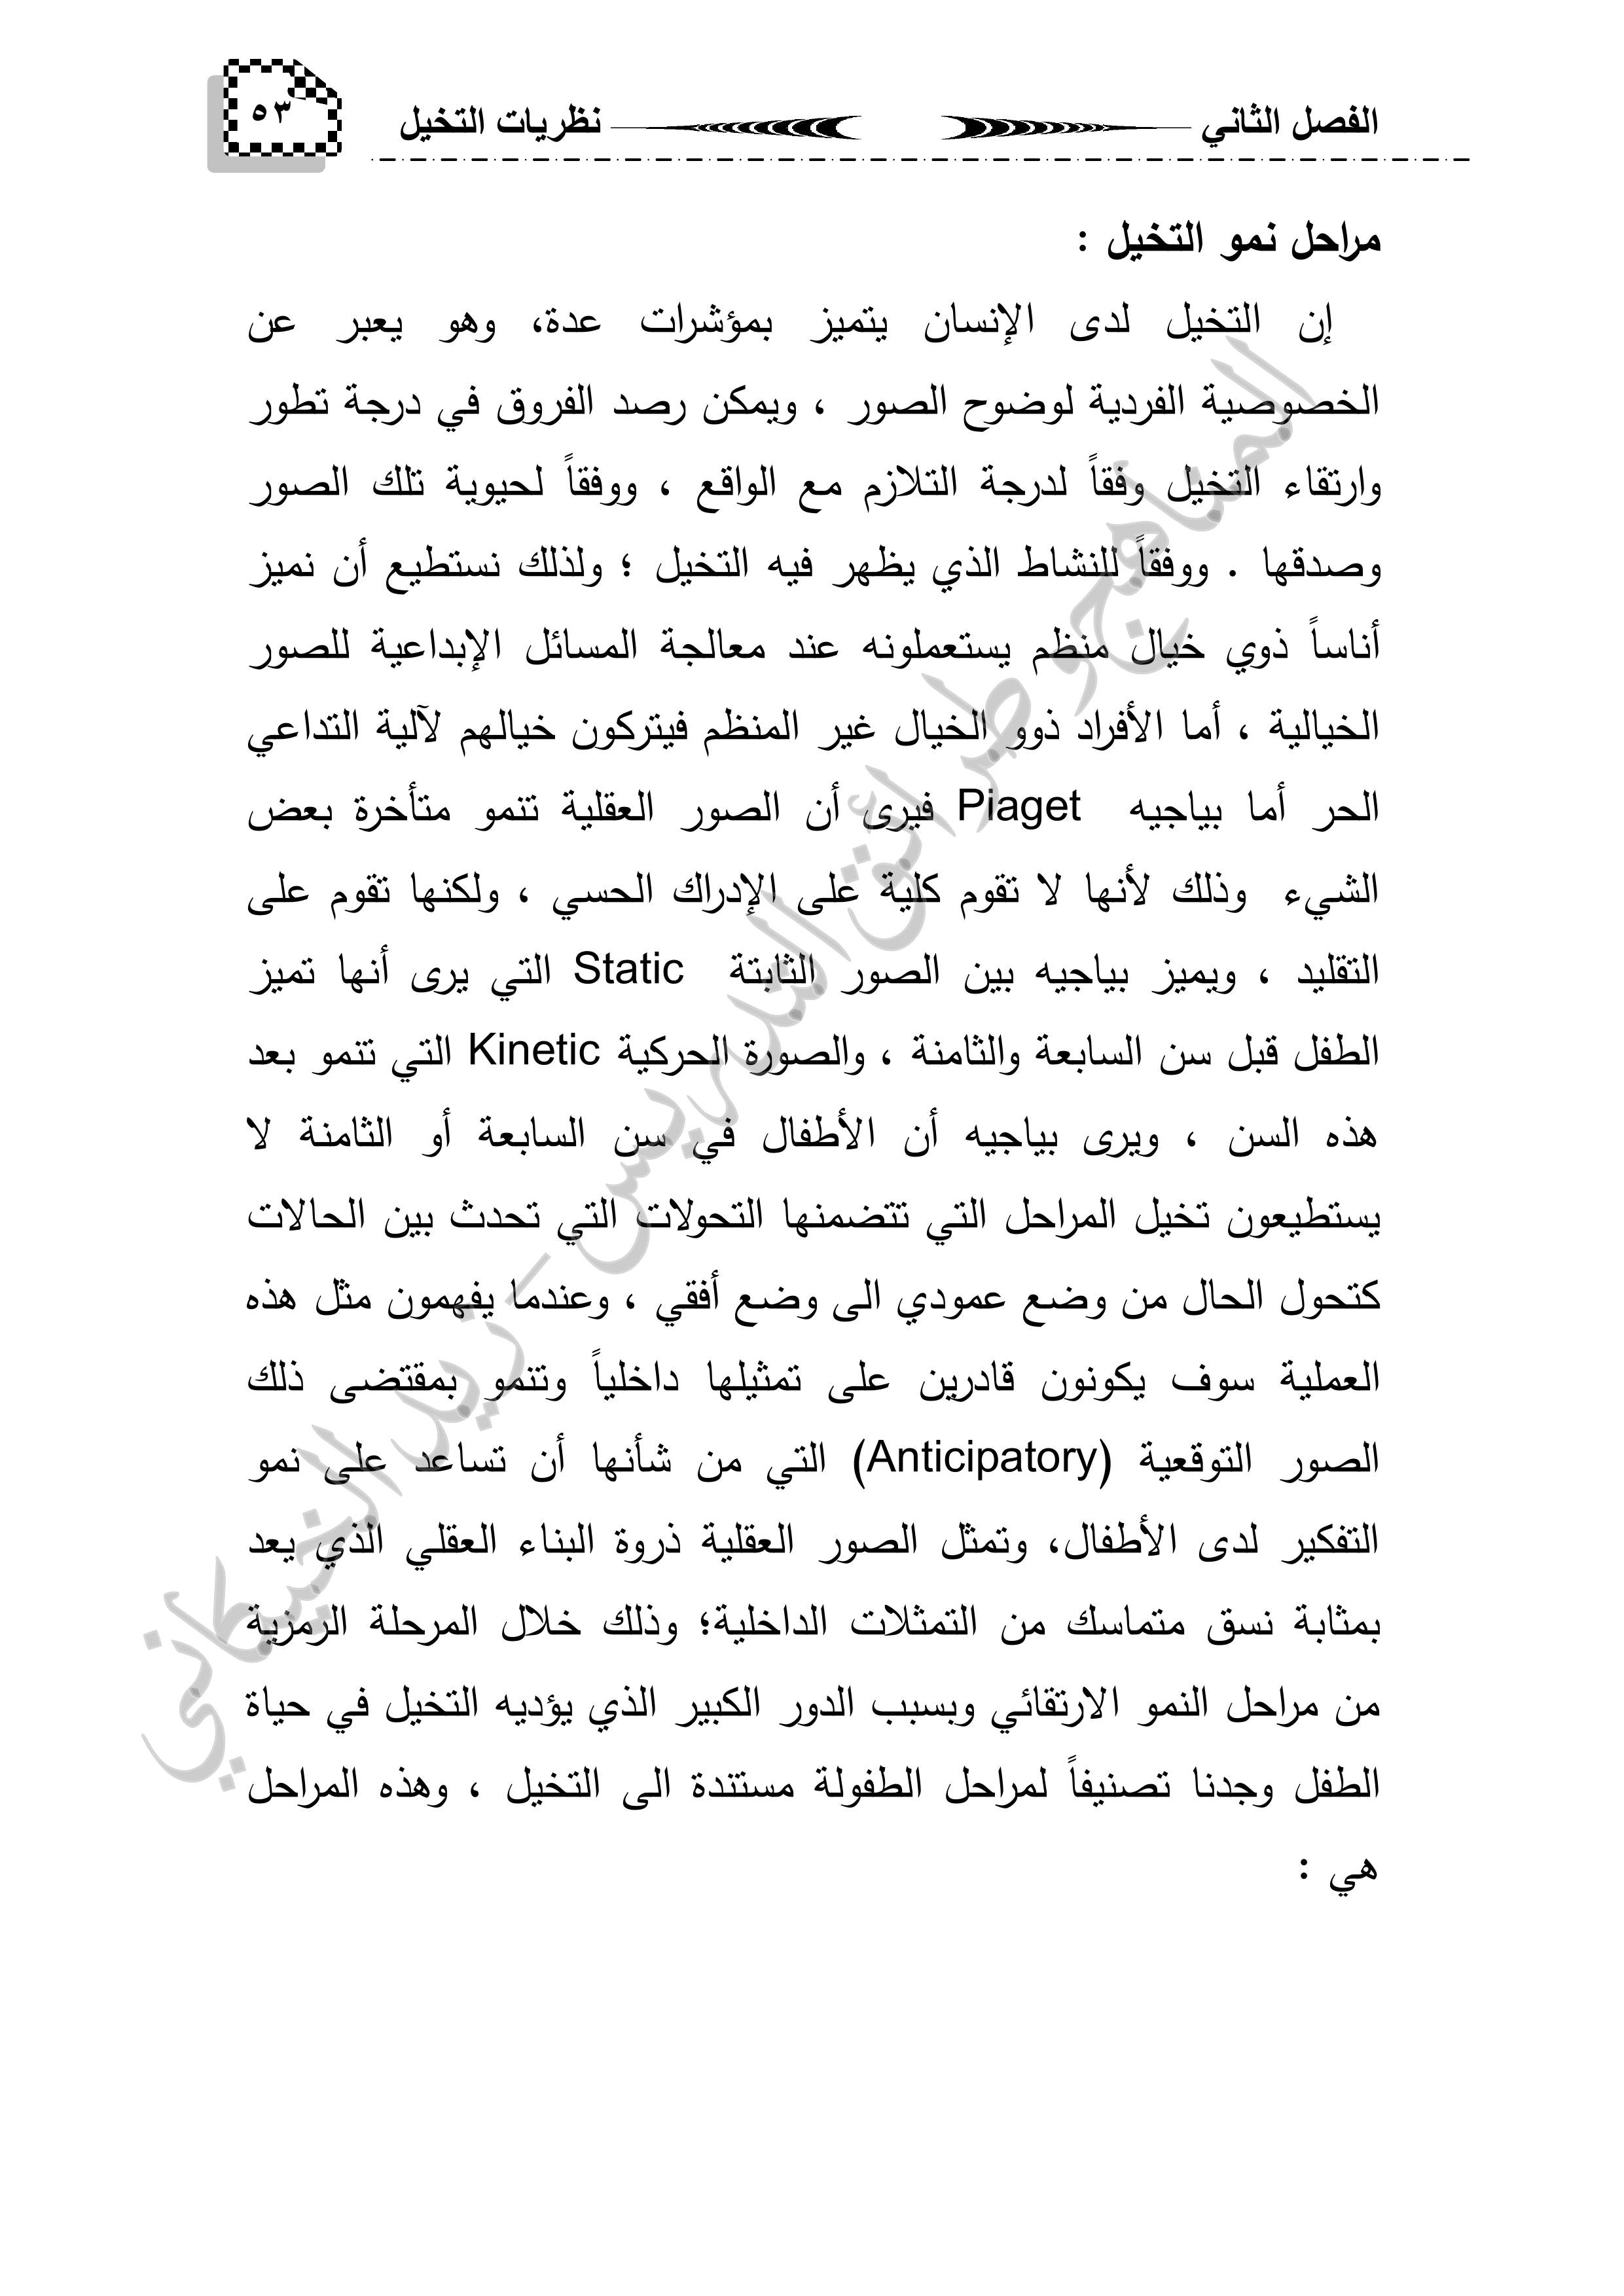 الفصل الثاني نظريات التخيل ٥٣
مراحل نمو التخيل :
إن التخيل لدى الإنسان يتميز بمؤشرات عدة، وهو يعبر عن
الخصوصية الفردية لوضوح الصور ، ويمكن رصد الفروق في درجة تطور
وارتقاء التخيل وفقاً لدرجة التلازم مع الواقع ، ووفقاً لحيوية تلك الصور
وصدقها . ووفقاً للنشاط الذي يظهر فيه التخيل ؛ ولذلك نستطيع أن نميز
أناساً ذوي خيال منظم يستعملونه عند معالجة المسائل الإبداعية للصور
الخيالية ، أما الأفراد ذوو الخيال غير المنظم فيتركون خيالهم لآلية التداعي
الحر أما بياجيه Piaget فيرى أن الصور العقلية تنمو متأخرة بعض
الشيء وذلك لأنها لا تقوم كلية على الإدراك الحسي ، ولكنها تقوم على
التقليد ، ويميز بياجيه بين الصور الثابتة Static التي يرى أنها تميز
الطفل قبل سن السابعة والثامنة ، والصورة الحركية Kinetic التي تنمو بعد
هذه السن ، ويرى بياجيه أن الأطفال في سن السابعة أو الثامنة لا
يستطيعون تخيل المراحل التي تتضمنها التحولات التي تحدث بين الحالات
كتحول الحال من وضع عمودي الى وضع أفقي ، وعندما يفهمون مثل هذه
العملية سوف يكونون قادرين على تمثيلها داخلياً وتنمو بمقتضى ذلك
الصور التوقعية (Anticipatory) التي من شأنها أن تساعد على نمو
التفكير لدى الأطفال، وتمثل الصور العقلية ذروة البناء العقلي الذي يعد
بمثابة نسق متماسك من التمثلات الداخلية؛ وذلك خلال المرحلة الرمزية
من مراحل النمو الارتقائي وبسبب الدور الكبير الذي يؤديه التخيل في حياة
الطفل وجدنا تصنيفاً لمراحل الطفولة مستندة الى التخيل ، وهذه المراحل
هي :
المناهج وطرائق التدريس - زيد الخيكاني